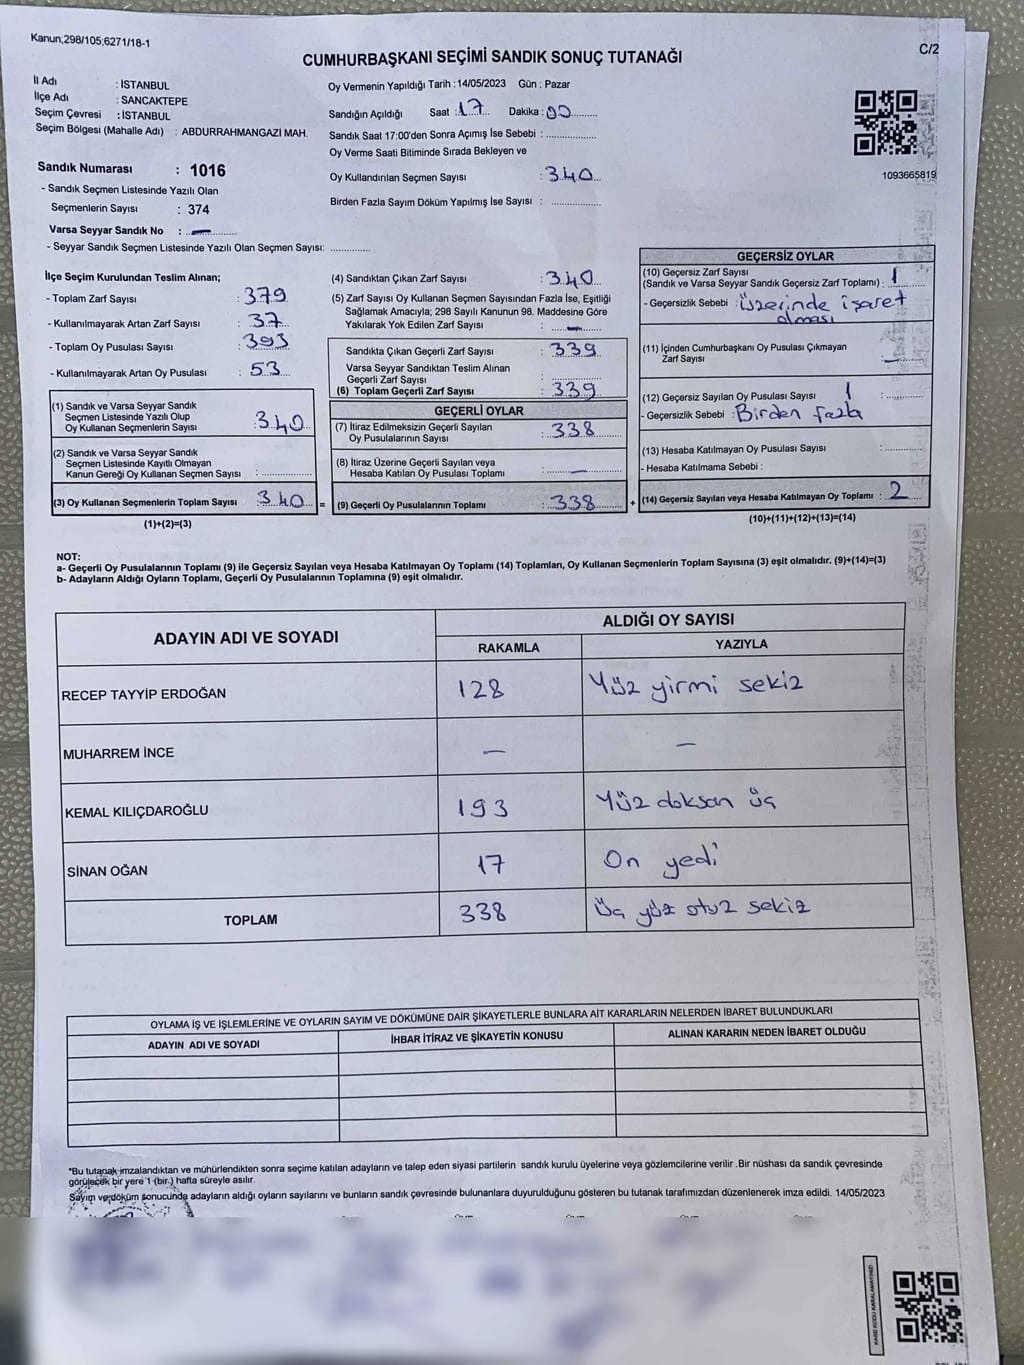 Kanun;298/105;6271/18-1
C/2
CUMHURBAŞKANI SEÇİMİ SANDIK SONUÇ TUTANAĞI
İl Adı : İSTANBUL
İlçe Adı : SANCAKTEPE
Seçim Çevresi : İSTANBUL
Seçim Bölgesi (Mahalle Adı) : ABDURRAHMANGAZİ MAH.
Sandık Numarası : 1016
- Sandık Seçmen Listesinde Yazılı Olan
Seçmenlerin Sayısı : 374
Varsa Seyyar Sandık No : —
- Seyyar Sandık Seçmen Listesinde Yazılı Olan Seçmen Sayısı: ..............
Oy Vermenin Yapıldığı Tarih : 14/05/2023 Gün : Pazar
Sandığın Açıldığı Saat : 17 Dakika : 00
Sandık Saat 17:00'den Sonra Açımış İse Sebebi : ..................
Oy Verme Saati Bitiminde Sırada Bekleyen ve
Oy Kullandırılan Seçmen Sayısı : 340
Birden Fazla Sayım Döküm Yapılmış İse Sayısı : ..................
1093665819
İlçe Seçim Kurulundan Teslim Alınan;
- Toplam Zarf Sayısı : 379
- Kullanılmayarak Artan Zarf Sayısı : 37
- Toplam Oy Pusulası Sayısı : 393
- Kullanılmayarak Artan Oy Pusulası : 53
(1) Sandık ve Varsa Seyyar Sandık
Seçmen Listesinde Yazılı Olup
Oy Kullanan Seçmenlerin Sayısı : 340
(2) Sandık ve Varsa Seyyar Sandık
Seçmen Listesinde Kayıtlı Olmayan
Kanun Gereği Oy Kullanan Seçmen Sayısı : ..............
(3) Oy Kullanan Seçmenlerin Toplam Sayısı : 340 =
(1)+(2)=(3)
(4) Sandıktan Çıkan Zarf Sayısı : 340
(5) Zarf Sayısı Oy Kullanan Seçmen Sayısından Fazla İse, Eşitliği
Sağlamak Amacıyla; 298 Sayılı Kanunun 98. Maddesine Göre
Yakılarak Yok Edilen Zarf Sayısı : —
Sandıkta Çıkan Geçerli Zarf Sayısı : 339
Varsa Seyyar Sandıktan Teslim Alınan
Geçerli Zarf Sayısı : ..............
(6) Toplam Geçerli Zarf Sayısı : 339
GEÇERLİ OYLAR
(7) İtiraz Edilmeksizin Geçerli Sayılan
Oy Pusulalarının Sayısı : 338
(8) İtiraz Üzerine Geçerli Sayılan veya
Hesaba Katılan Oy Pusulası Toplamı : —
(9) Geçerli Oy Pusulalarının Toplamı : 338 +
GEÇERSİZ OYLAR
(10) Geçersiz Zarf Sayısı
(Sandık ve Varsa Seyyar Sandık Geçersiz Zarf Toplamı) : 1
- Geçersizlik Sebebi : Üzerinde işaret
olması
(11) İçinden Cumhurbaşkanı Oy Pusulası Çıkmayan
Zarf Sayısı : —
(12) Geçersiz Sayılan Oy Pusulası Sayısı : 1
- Geçersizlik Sebebi : Birden fazla
(13) Hesaba Katılmayan Oy Pusulası Sayısı : ..........
- Hesaba Katılmama Sebebi :
(14) Geçersiz Sayılan veya Hesaba Katılmayan Oy Toplamı : 2
(10)+(11)+(12)+(13)=(14)
NOT:
a- Geçerli Oy Pusulalarının Toplamı (9) ile Geçersiz Sayılan veya Hesaba Katılmayan Oy Toplamı (14) Toplamları, Oy Kullanan Seçmenlerin Toplam Sayısına (3) eşit olmalıdır. (9)+(14)=(3)
b- Adayların Aldığı Oyların Toplamı, Geçerli Oy Pusulalarının Toplamına (9) eşit olmalıdır.
ADAYIN ADI VE SOYADI
ALDIĞI OY SAYISI
RAKAMLA YAZIYLA
RECEP TAYYİP ERDOĞAN 128 Yüz yirmi sekiz
MUHARREM İNCE — —
KEMAL KILIÇDAROĞLU 193 Yüz doksan üç
SİNAN OĞAN 17 On yedi
TOPLAM 338 Üç yüz otuz sekiz
OYLAMA İŞ VE İŞLEMLERİNE VE OYLARIN SAYIM VE DÖKÜMÜNE DAİR ŞİKAYETLERLE BUNLARA AİT KARARLARIN NELERDEN İBARET BULUNDUKLARI
ADAYIN ADI VE SOYADI İHBAR İTİRAZ VE ŞİKAYETİN KONUSU ALINAN KARARIN NEDEN İBARET OLDUĞU
*Bu tutanak imzalandıktan ve mühürlendikten sonra seçime katılan adayların ve talep eden siyasi partilerin sandık kurulu üyelerine veya gözlemcilerine verilir .Bir nüshası da sandık çevresinde
görülecek bir yere 1 (bir.) hafta süreyle asılır.
Sayım ve döküm sonucunda adayların aldığı oyların sayılarını ve bunların sandık çevresinde bulunanlara duyurulduğunu gösteren bu tutanak tarafımızdan düzenlenerek imza edildi. 14/05/2023
KARE KODU KARALAMAYINIZ!